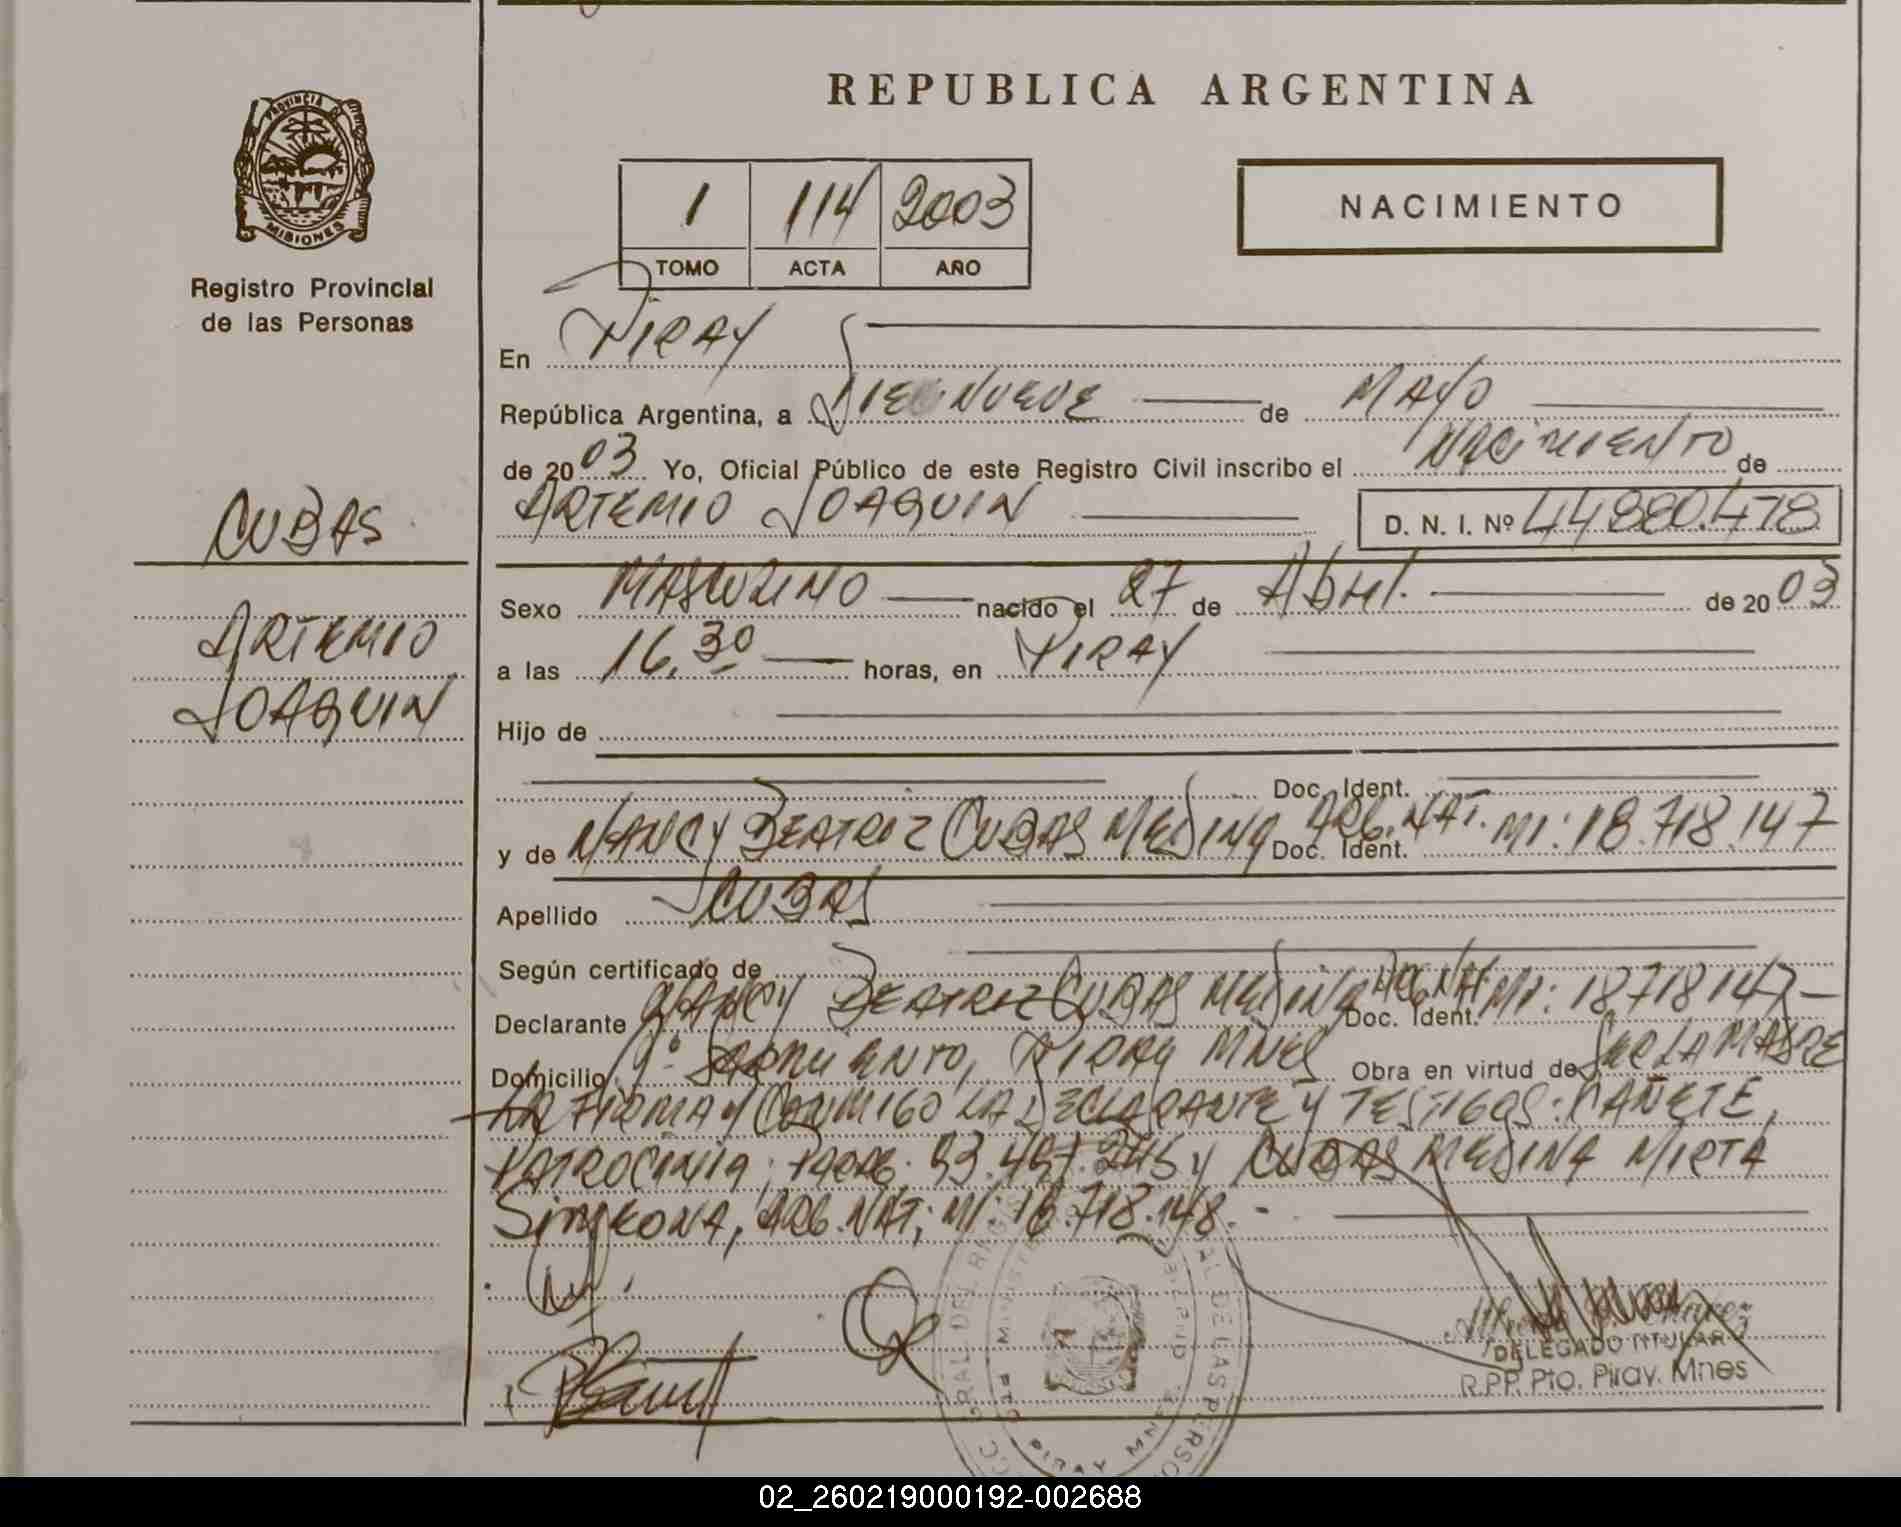 REPUBLICA ARGENTINA
PROVINCIA DE
MISIONES
Registro Provincial
de las Personas
1 114 2003
TOMO ACTA AÑO
NACIMIENTO
En PIRAY
República Argentina, a DIECINUEVE de MAYO
de 2003 Yo, Oficial Público de este Registro Civil inscribo el NACIMIENTO de
ARTEMIO JOAQUIN D. N. I. Nº 44880.478
CUBAS
ARTEMIO
JOAQUIN
Sexo MASCULINO nacido el 27 de Abril. de 2003
a las 16,30 horas, en PIRAY
Hijo de
Doc. Ident.
y de NANCY BEATRIZ CUBAS MEDINA Doc. Ident. ARG. NAT. MI: 18.718.147
Apellido CUBAS
Según certificado de
Declarante NANCY BEATRIZ CUBAS MEDINA Doc. Ident. ARG. NAT. MI: 18718147
Domicilio Bº SARMIENTO, PIRAY MNES Obra en virtud de SER LA MADRE
FIRMA Y CONMIGO LA DECLARANTE Y TESTIGOS: CAÑETE,
PATROCINIA; PARAG. 93.457.245 y CUBAS MEDINA MIRTA
SIMEONA, ARG. NAT; MI: 18.718.148.-
DELEGADO TITULAR
R.P.P. Pto. Piray. Mnes
PIRAY MNES
02_260219000192-002688